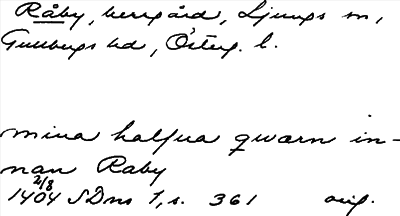 Råby, herrgård, Ljungs sn,
Gullbergs hd, Österg. l.
mina halfua qwarn in-
nan Raby
2/8
1404 SDns 1, s. 361 orig.